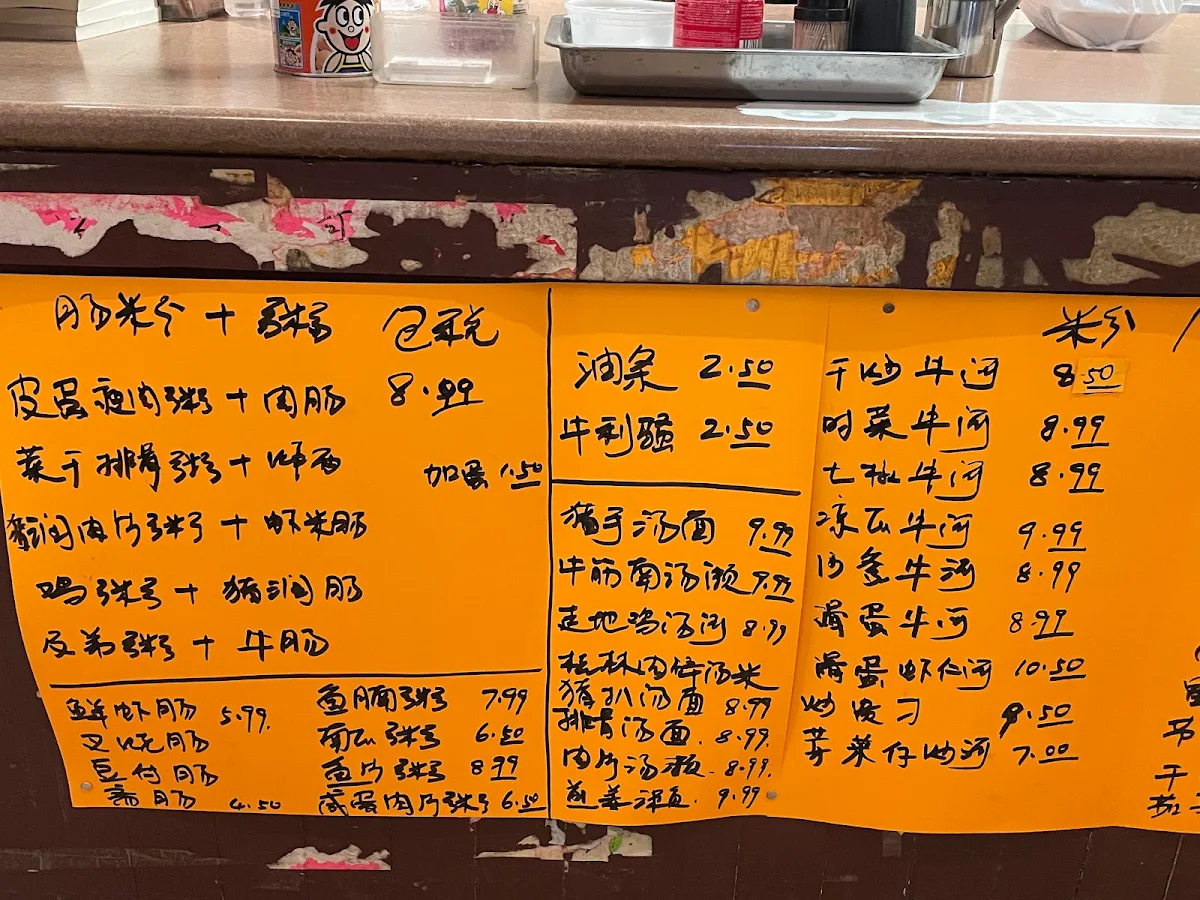 肠米分 + 粥 包税
皮蛋瘦肉粥 + 肉肠 8.99
菜干排骨粥 + 炸两
加蛋 1.50
猪润肉片粥 + 虾米肠
鸡粥 + 猪润肠
及弟粥 + 牛肠
鲜虾肠 5.99
叉烧肠
豆付肠
斋肠 4.50
鱼腩粥 7.99
南瓜粥 6.50
鱼片粥 8.99
咸蛋肉片粥 6.50
油条 2.50
牛利 2.50
猪手汤面 9.99
牛筋南汤濑 9.99
走地鸡汤河 8.99
桂林肉碎汤米
猪扒汤面 8.99
排骨汤面. 8.99.
肉片汤濑. 8.99.
9.99
米分
干炒牛河 8.50
时菜牛河 8.99
牛河 8.99
凉瓜牛河 9.99
沙爹牛河 8.99
滑蛋牛河 8.99
滑蛋虾仁河 10.50
炒 9.50
芽菜仔炒河 7.00
干
茄